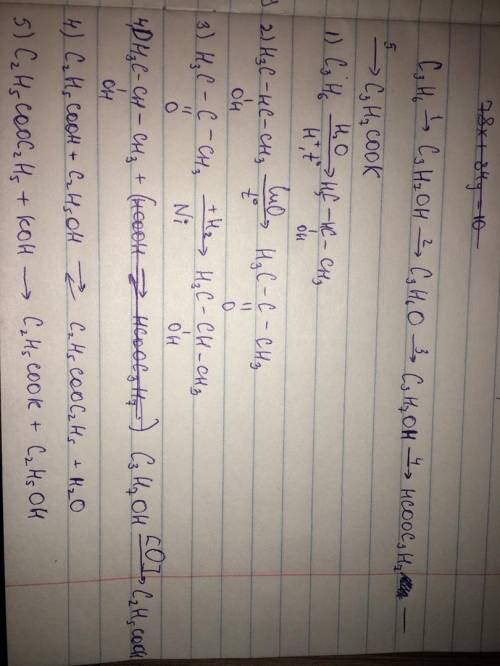 7,8x + 24y = 10
C₃H₆ →¹ C₃H₇OH →² C₃H₆O →³ C₃H₇OH →⁴ HCOOC₃H₇ —
⁵→ C₃H₇COOK
1) C₃H₆ H₂O → H⁺, t° H₃C-HC-CH₃
OH
2) H₃C-HC-CH₃ CuO → t° H₃C-C-CH₃
OH O
3) H₃C-C-CH₃ +H₂ → Ni H₃C-CH-CH₃
O OH
4) H₃C-CH-CH₃ + (HCOOH ⇄ HCOOC₃H₇) C₃H₇OH [O] → C₂H₅COOH
OH
4) C₂H₅COOH + C₂H₅OH ⇄ C₂H₅COOC₂H₅ + H₂O
5) C₂H₅COOC₂H₅ + KOH → C₂H₅COOK + C₂H₅OH